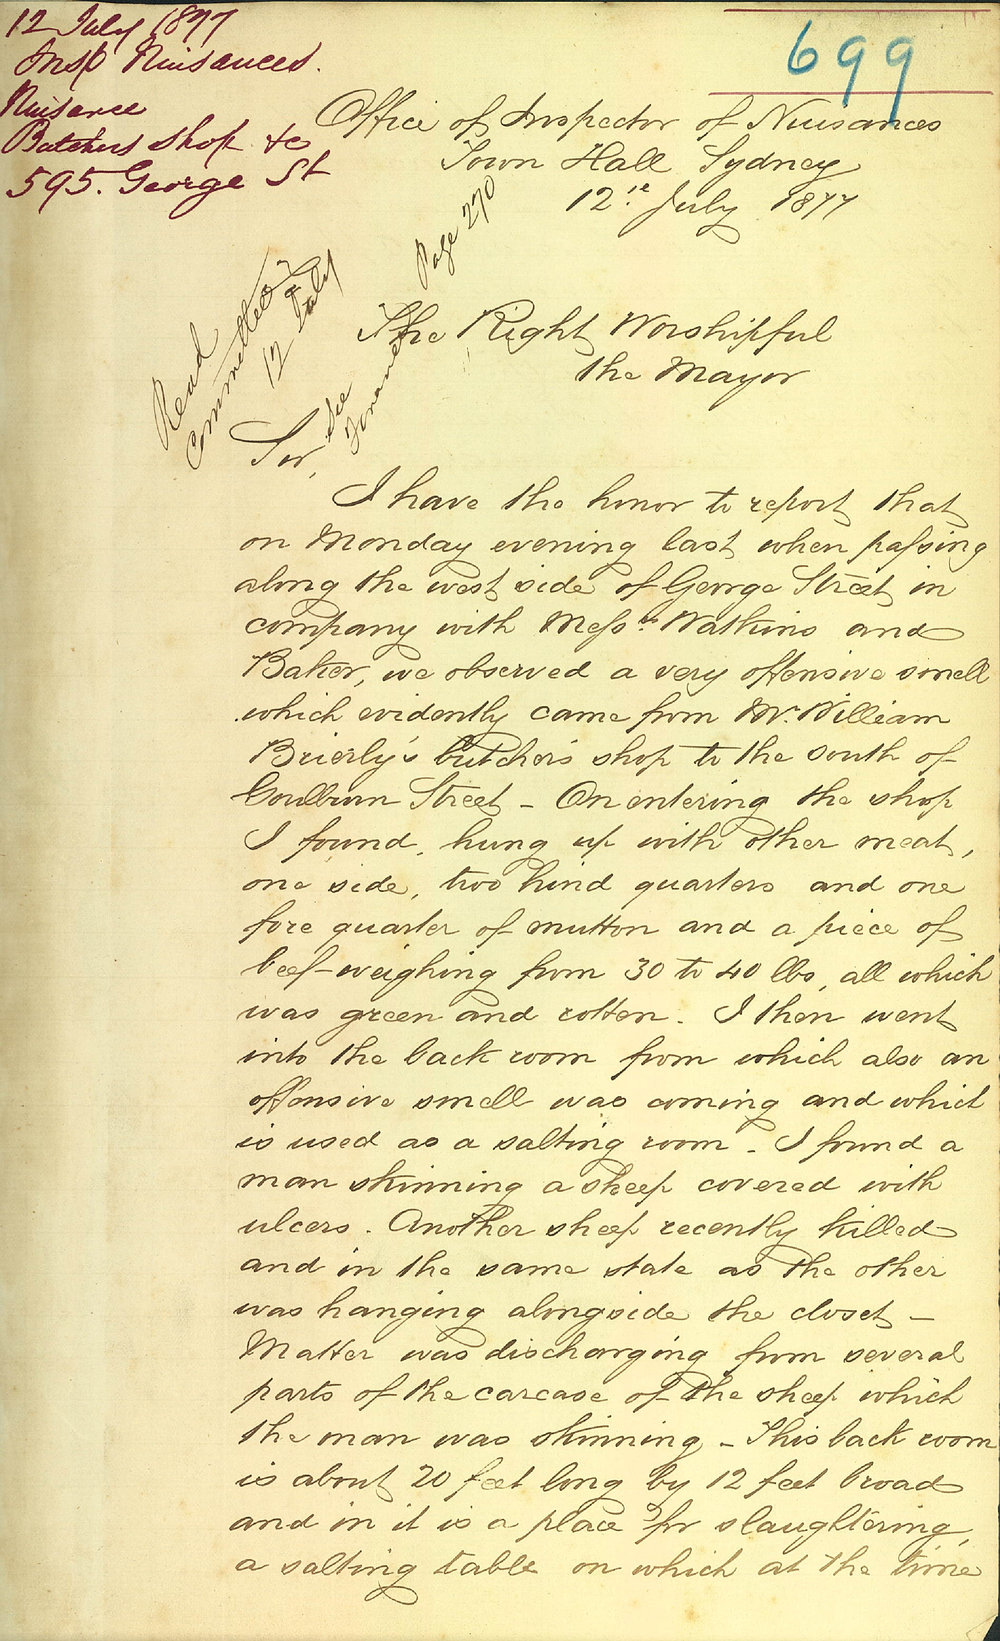 12 July 1877
Insp Nuisances.
Nuisance
Butchers shop &c
595. George St
699
Office of Inspector of Nuisances
Town Hall Sydney
12th July 1877
Read
Committee
12 July
See
Finance
Page 270
The Right Worshipful
the Mayor
Sir,
I have the honor to report that
on Monday evening last, when passing
along the west side of George Street in
company with Messrs Watkins and
Baker, we observed a very offensive smell
which evidently came from Mr. William
Brierly's butcher's shop to the south of
Goulburn Street – On entering the shop
I found, hung up with other meat,
one side, two hind quarters and one
fore quarter of mutton and a piece of
beef-weighing from 30 to 40 lbs, all which
was green and rotten. I then went
into the back room from which also an
offensive smell was coming and which
is used as a salting room. I found a
man skinning a sheep covered with
ulcers. Another sheep recently killed
and in the same state as the other
was hanging alongside the closet –
Matter was discharging from several
parts of the carcase of the sheep which
the man was skinning – This back room
is about 20 feet long by 12 feet broad
and in it is a place for slaughtering,
a salting table on which at the time